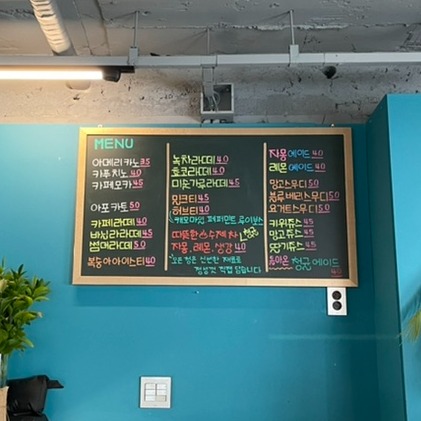 MENU
아메리카노 3.5
카푸치노 4.0
카페모카 4.5
아포카토 5.0
카페라떼 4.0
바닐라라떼 4.5
복숭아 아이스티 4.0
녹차라떼 4.0
초코라떼 4.0
미숫가루라떼 4.5
밀크티 4.5
허브티 4.0
캐모마일 페퍼민트 루이보스
따뜻한 수제차
자몽, 레몬, 생강 4.0
모든 청은 신선한 재료로
정성껏 직접 담급니다
자몽에이드 4.0
레몬에이드 4.0
망고스무디 5.0
블루베리스무디 5.0
요거트스무디 5.0
키위쥬스 4.5
망고쥬스 4.5
딸기쥬스 4.5
청귤에이드
4.0